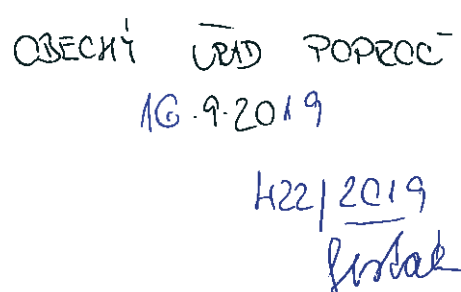 OBECNÝ ÚRAD POPROČ
16.9.2019
422/2019